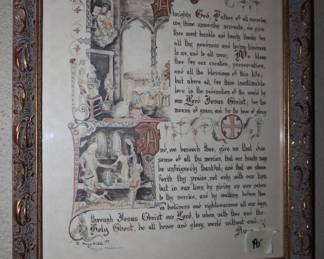 lmighty God, Father of all mercies,
we thine unworthy servants, do give
thee most humble and hearty thanks for
all thy goodness and loving kindness
to us, and to all men; We bless
thee for our creation, preservation,
and all the blessings of this life;
but above all, for thine inestimable
love in the redemption of the world by
our Lord Jesus Christ; for the
means of grace, and for the hope of glory
And, we beseech thee, give us that due
sense of all thy mercies, that our hearts may
be unfeignedly thankful; and that we show
forth thy praise, not only with our lips
but in our lives, by giving up our selves
to thy service, and by walking before thee
in holiness and righteousness all our days
through Jesus Christ our Lord, to whom, with thee and the
Holy Ghost, be all honor and glory, world without end